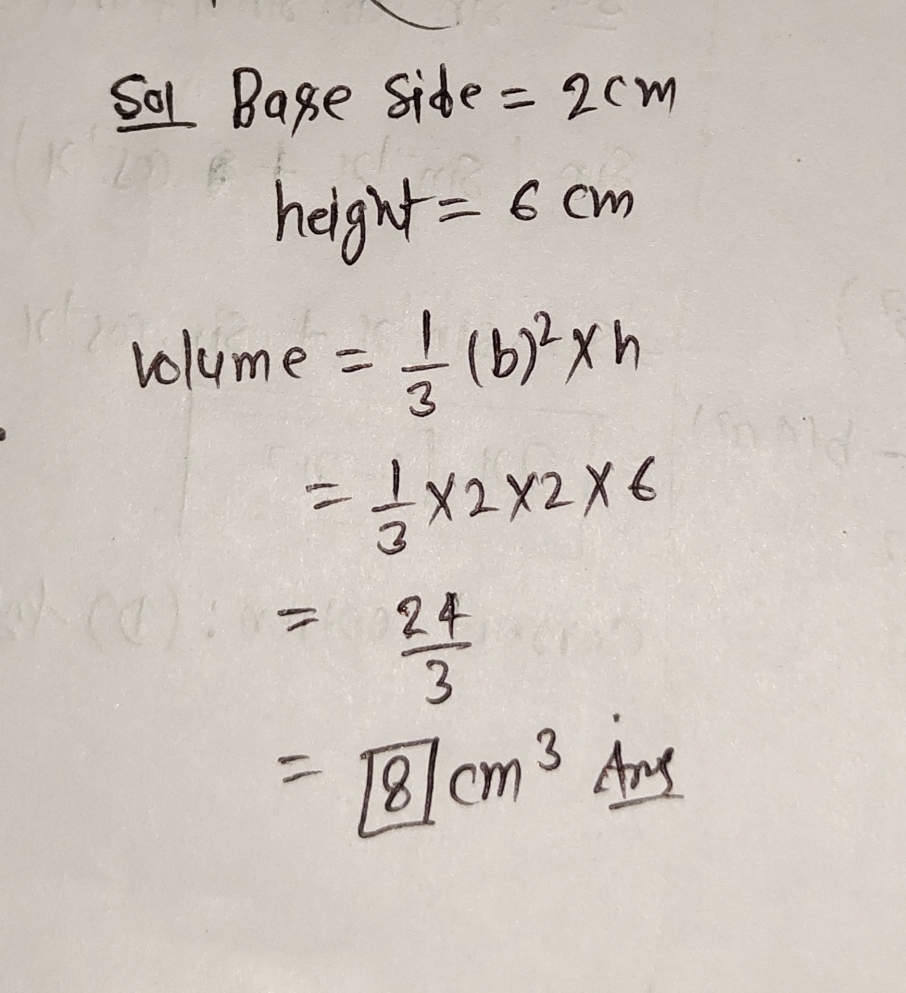 Sol Base side = 2cm
height = 6 cm
Volume = 1/3 (b)² × h
= 1/3 × 2 × 2 × 6
= 24/3
= 8 cm³ Ans